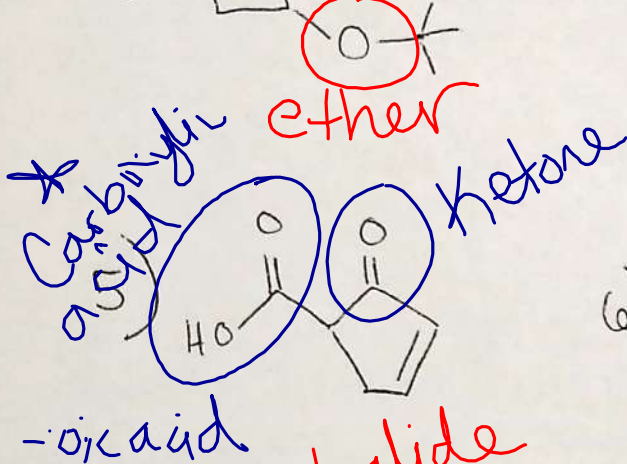 O
ether
* Carboxylic acid
Ketone
O
O
5)
HO
-oic acid